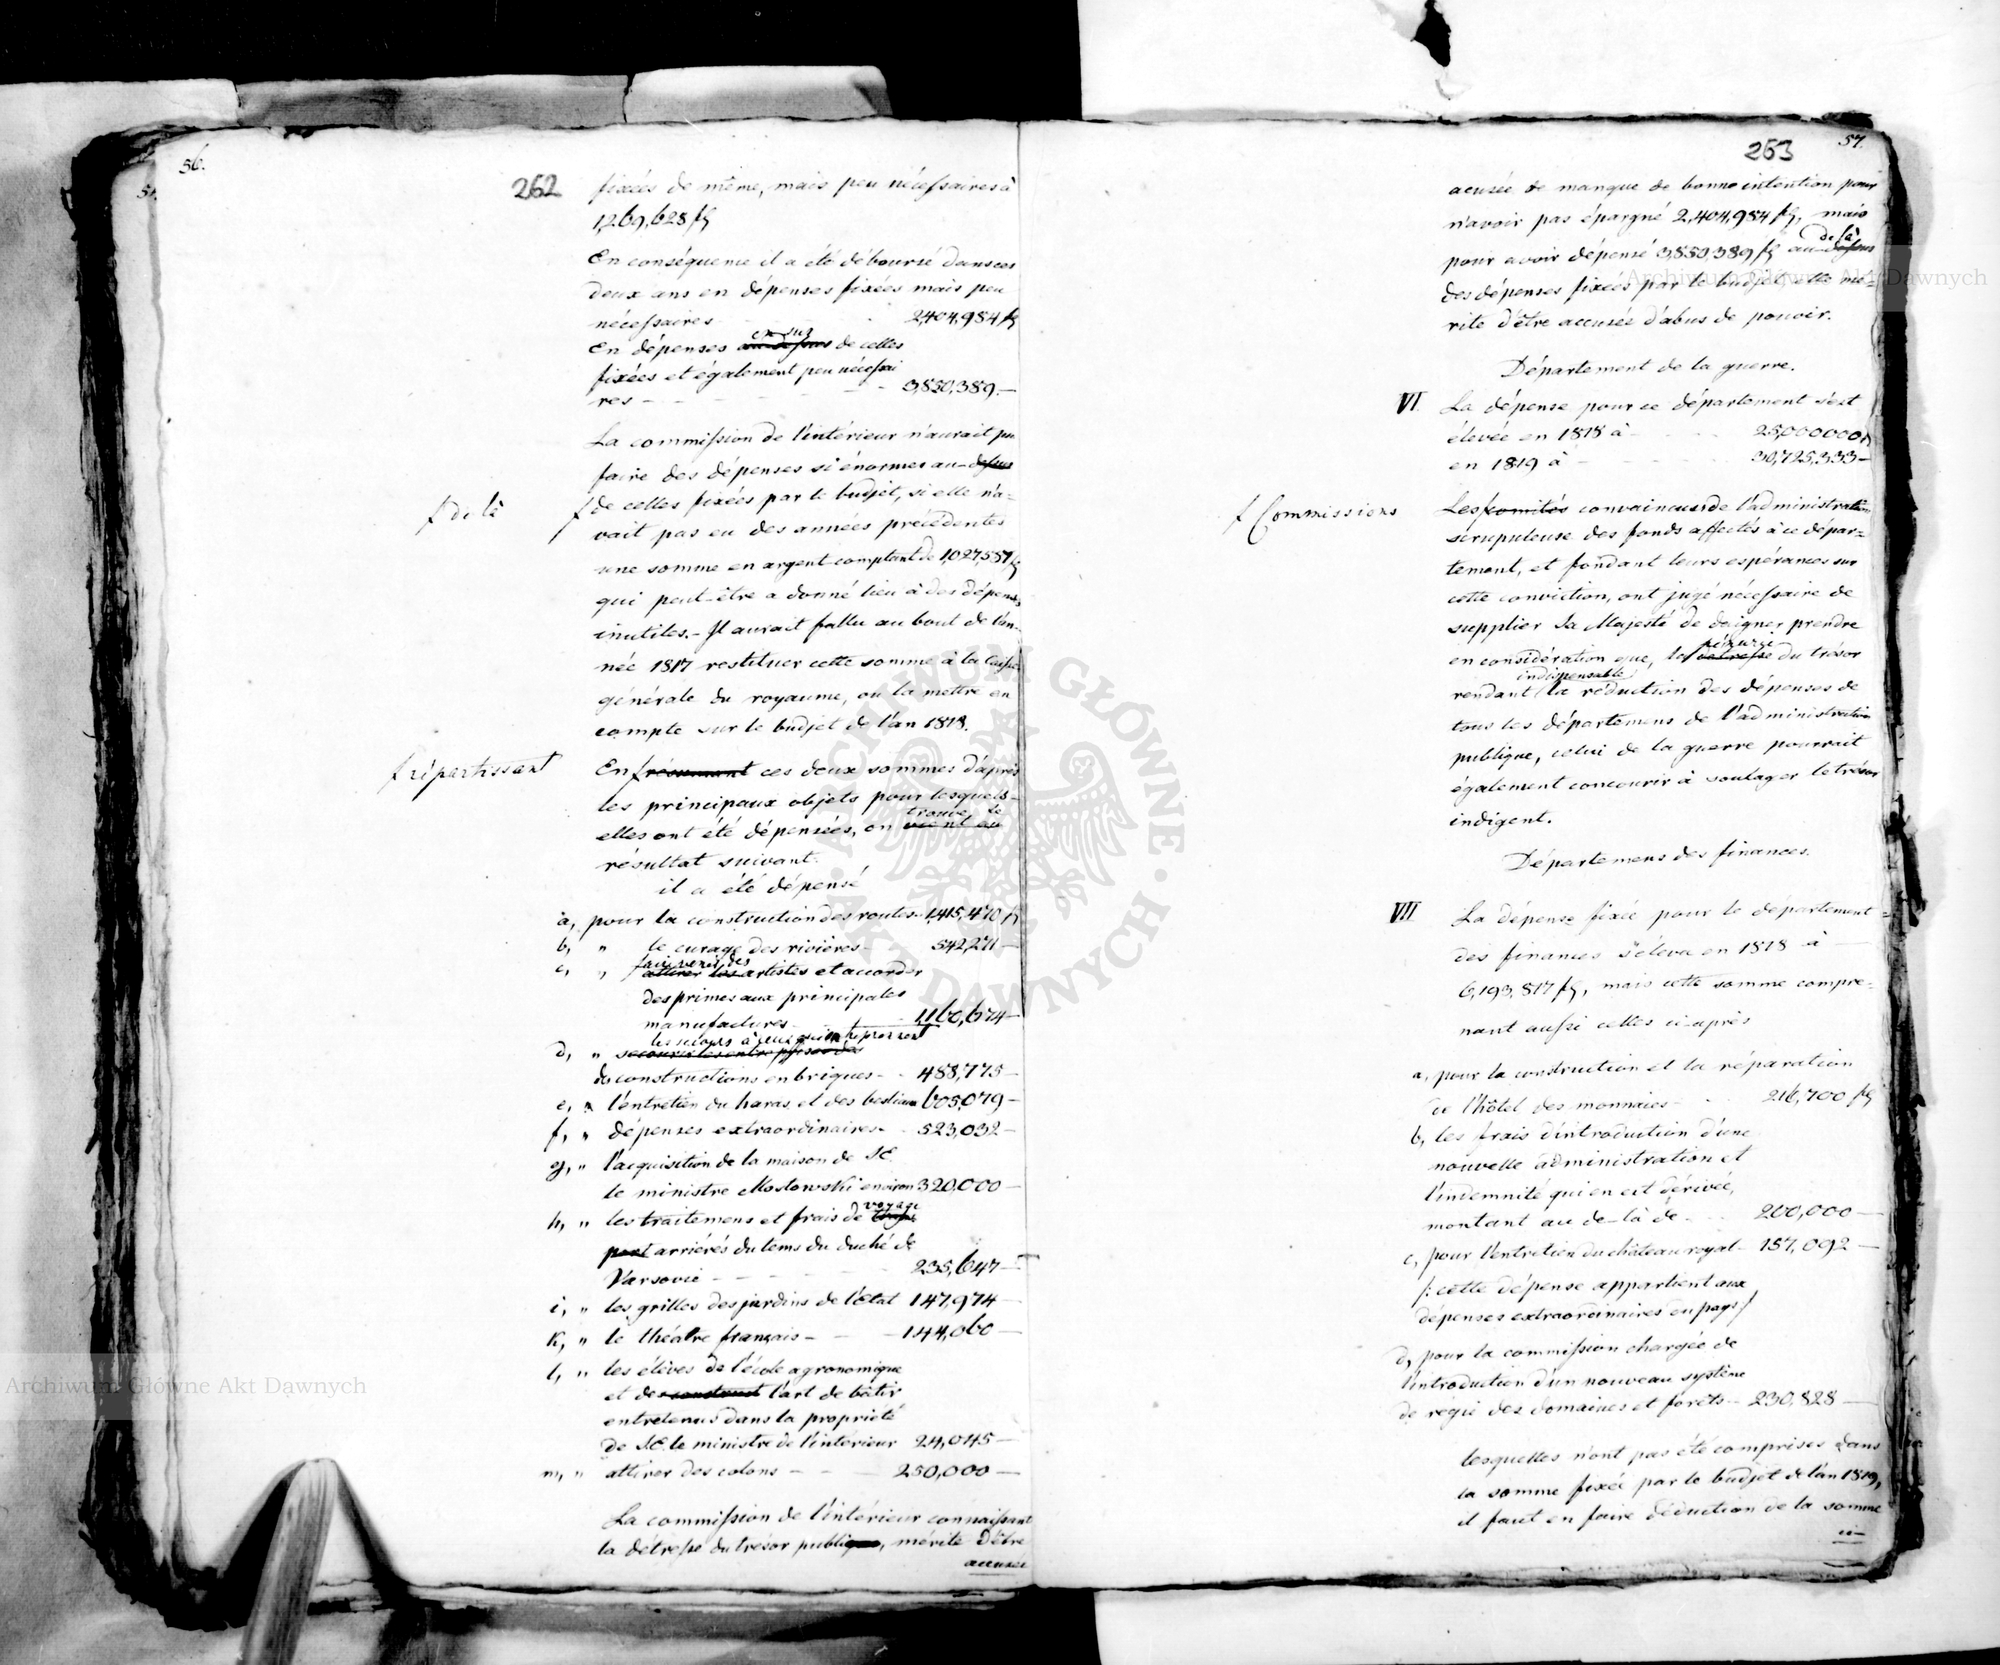 56.
262
fixées de même, mais peu nécessaires à
1,269,628 fl
En conséquence il a été déboursé dans ces
deux ans en dépenses fixées mais peu
nécessaires - 2,404,984 fl
en sus
En dépenses au-dessus de celles
fixées et également peu nécessai
res - - - - 3,850,389.—
La commission de l'intérieur n'aurait pu
faire des dépenses si énormes au-dessus
f de là f de celles fixées par le budjet, si elle n'a-
vait pas eu des années précédentes
une somme en argent comptant de 1,027,557 fl
qui peut-être a donné lieu à des dépenses
inutiles. - Il aurait fallu au bout de l'an-
née 1817 restituer cette somme à la caisse
générale du royaume, ou la mettre en
compte sur le budjet de l'an 1818.
f répartissant En f résumant ces deux sommes d'après
les principaux objets pour lesquels
trouve le
elles ont été dépensées, on vient au
résultat suivant.
il a été dépensé
a, pour la construction des routes - 1,415,470 fl
b, " le curage des rivières - 542,271 —
faire venir des
c, " attirer les artistes et accorder
des primes aux principales
manufactures - 1,160,674 —
les secours à ceux qui entreprennent
d, " secourir les entreprises des
des constructions en briques - - 488,775 —
e, " l'entretien du haras, et des bestiaux 605,079 —
f, " dépenses extraordinaires - - 523,032 —
g, " l'acquisition de la maison de S.E.
le ministre Mostowski environ 320,000 —
voyage
h, " les traitemens et frais de trans
port arriérés du tems du duché de
Varsovie - - - - 235,647 —
i, " les grilles des jardins de l'Etat 147,974 —
k, " le théatre français - - 144,060 —
l, " les élèves de l'école agronomique
et de construct l'art de bâtir
entretenus dans la propriété
de S.E. le ministre de l'intérieur 24,045 —
m, " attirer des colons - - - 250,000 —
La commission de l'intérieur connaissant
la détresse du trésor publique, mérite d'être
accusée
57.
263
acusée de manque de bonne intention pour
n'avoir pas épargné 2,404,984 fl, mais
de là
pour avoir dépensé 3,850,389 fl au-dessus
des dépenses fixées par le budjet, elle mé-
rite d'être accusée d'abus de pouvoir.
Département de la guerre.
VI. La dépense pour ce département s'est
élevée en 1818 à - - 25,000,000 fl
en 1819 à - - - - 30,725,333 —
f Commissions Les f comités convaincus de l'administration
scrupuleuse des fonds affectés à ce dépar-
tement, et fondant leurs espérances sur
cette conviction, ont jugé nécessaire de
supplier Sa Majesté de daigner prendre
pénurie
en considération que, la détresse du trésor
indispensable
rendant la réduction des dépenses de
tous les départemens de l'administration
publique, celui de la guerre pourrait
également concourir à soulager le trésor
indigent.
Départemens des finances.
VII La dépense fixée pour le département
des finances s'éleva en 1818 à
6,193,817 fl, mais cette somme compre-
nant aussi celles ci-après
a, pour la construction et la réparation
de l'hôtel des monnaies - - 216,700 fl
b, les frais d'introduction d'une
nouvelle administration et
l'indemnité qui en est dérivée,
montant au de-là de - - 200,000 —
c, pour l'entretien du château royal - 157,092 —
/: cette dépense appartient aux
dépenses extraordinaires du pays /
d, pour la commission chargée de
l'introduction d'un nouveau système
de régie des domaines et forêts - 230,828 —
lesquelles n'ont pas été comprises dans
la somme fixée par le budjet de l'an 1819,
il faut en faire déduction de la somme
ci-
Archiwum Główne Akt Dawnych
Archiwum Główne Akt Dawnych
ARCHIWUM GŁÓWNE · AKT DAWNYCH ·